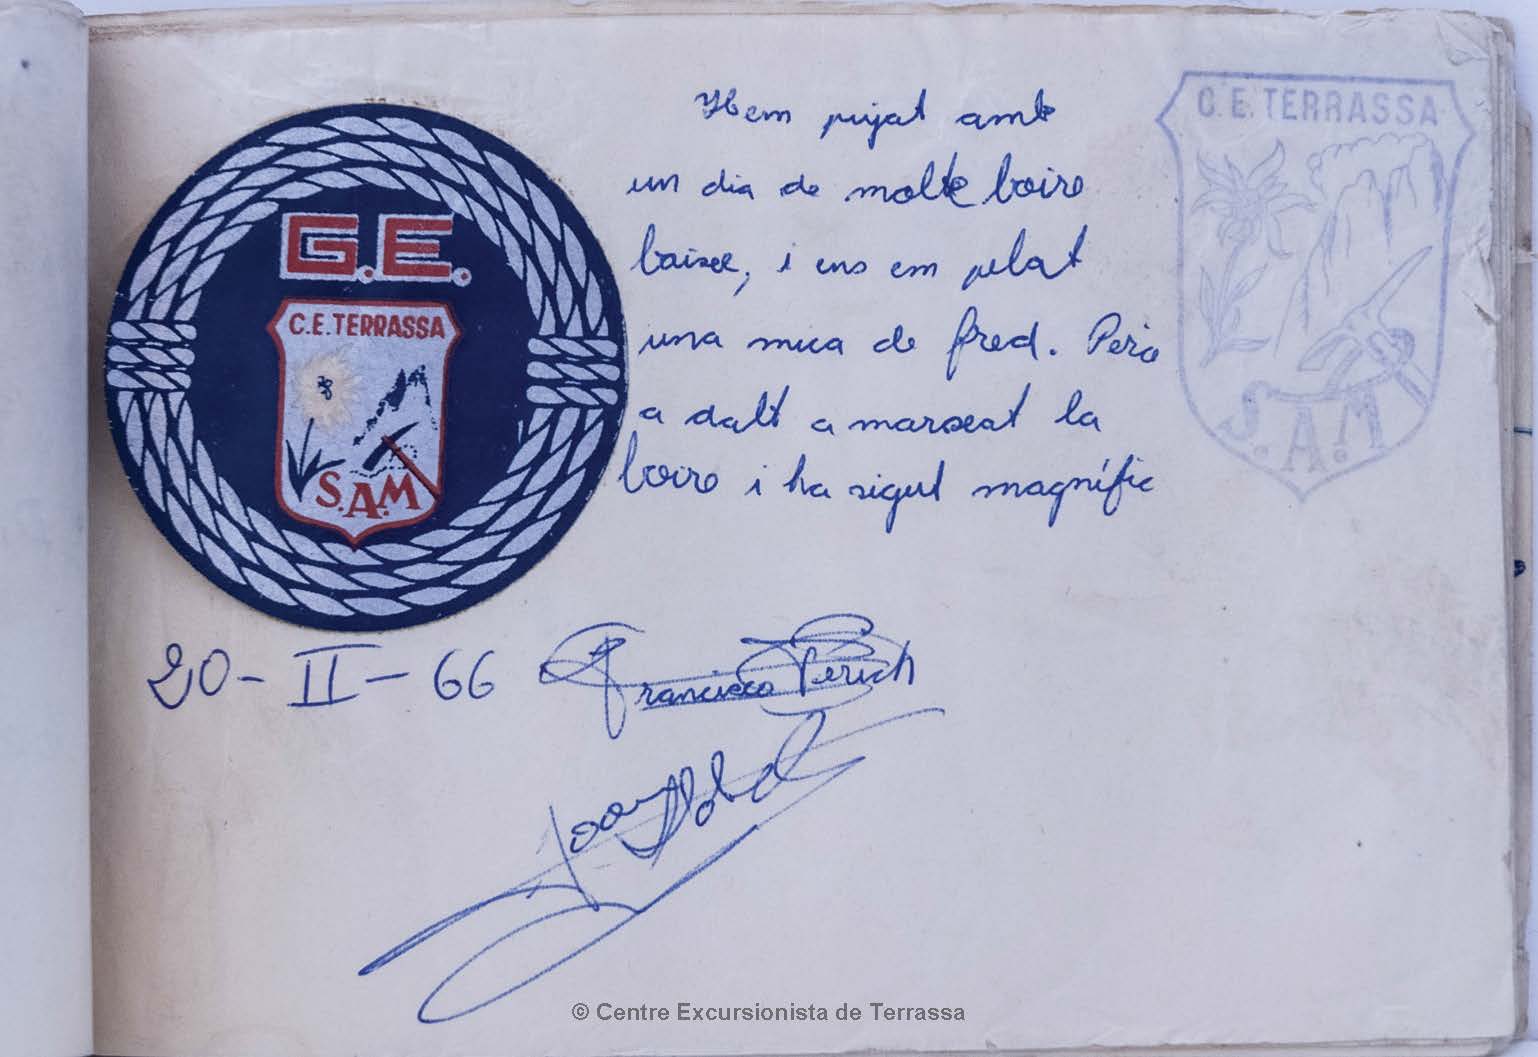 G.E.
C.E. TERRASSA
S.A.M
Hem pujat amb
un dia de molte boire
baixe, i ens em pelat
una mica de fred. Pero
a dalt a marxat la
boire i ha sigut magnífic
C.E. TERRASSA
S.A.M
20-II-66
Francisco Périch
Joan
© Centre Excursionista de Terrassa